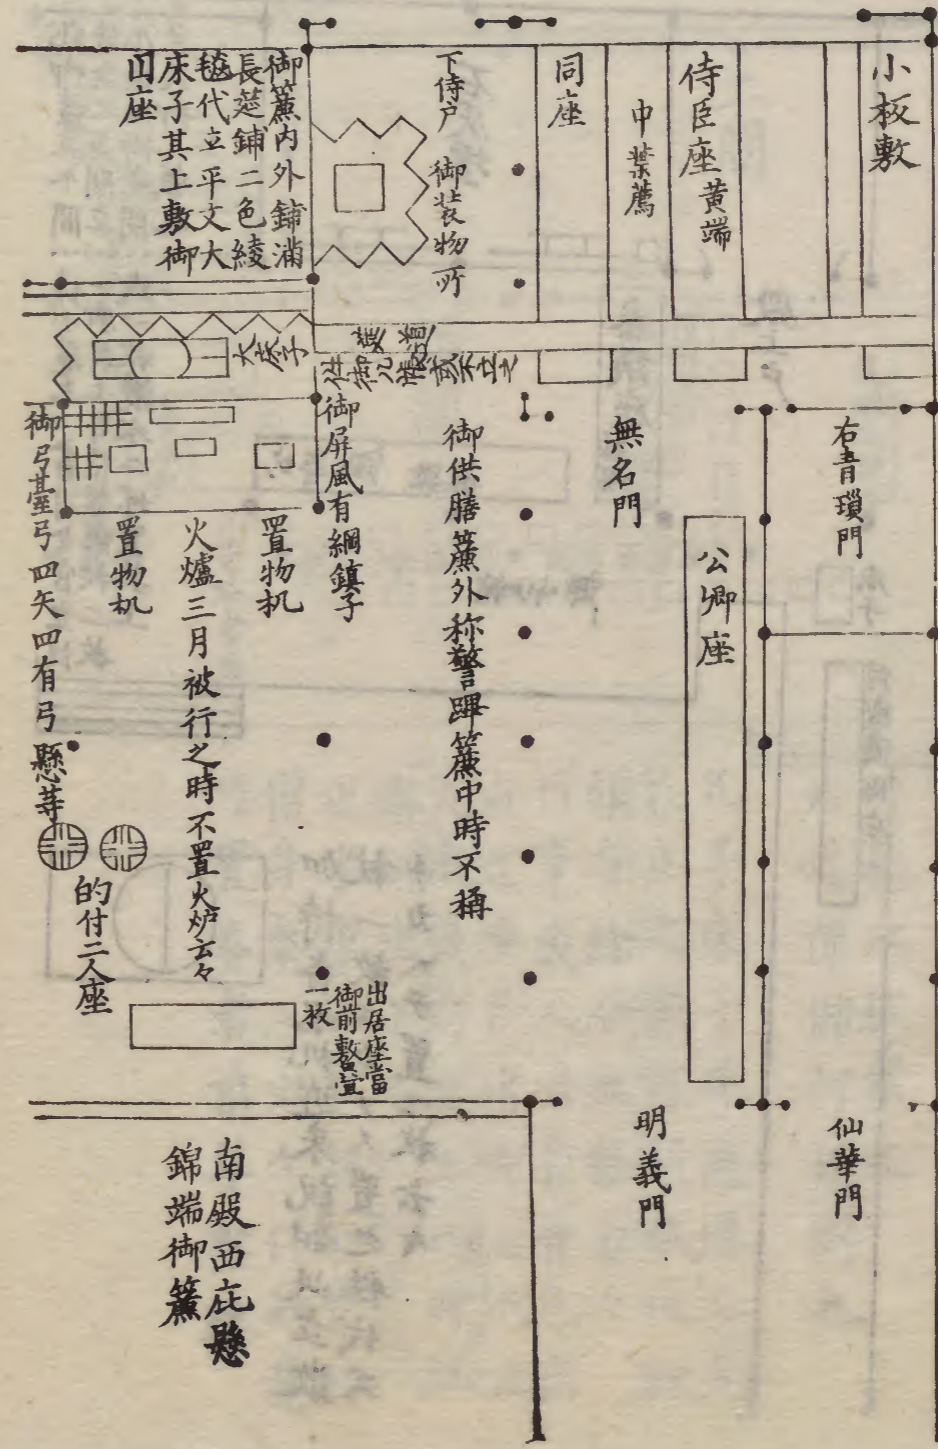 小板敷
侍臣座黄端
中葉薦
同座
下侍戸
御装物所
御簾内外鋪満
長莚鋪二色綾
毯代立平文大
床子其上敷御
座
大床子
件御几帳
右青瑣門
無名門
公卿座
御供膳簾外称警蹕簾中時不称
御屏風有綱鎮子
置物机
火爐三月被行之時不置火炉云々
置物机
御弓臺弓四矢四有弓懸等
的付二人座
出居座當
御前敷
一枚
仙華門
明義門
南殿西庇懸
錦端御簾